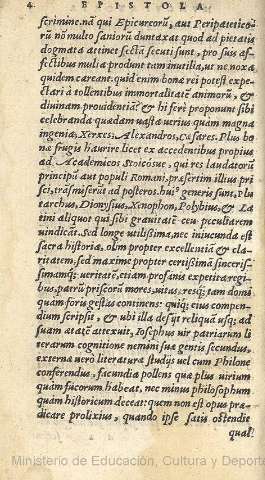 4 EPISTOLA
scrimine. nā qui Epicureorū, aut Peripateticorū
rū nō multo saniorū duntaxat quod ad pietatis
dogmata attinet sectā secuti sunt, pro suis affectibus
multa produnt tam inutilia, ut ne noxa
quidem careant. quid enim bonæ rei potest expectari
à tollentibus immortalitatē animorū, &
diuinam prouidentiā? & hi ferè proponunt sibi
celebranda quædam uasta uerius quam magna
ingenia, Xerxes, Alexandros, Cæsares. Plus bonæ
frugis haurire licet ex accedentibus propius
ad Academicos Stoicosue, qui res laudatorū
principū aut populi Romani, præsertim illius prisci,
trāsmiserūt ad posteros. hui⁹ generis sunt, Plutarchus,
Dionysius, Xenophon, Polybius, & Latini
aliquot qui sibi grauitatē ceu peculiarem
uindicāt. Sed longe utilissima, nec iniucunda est
sacra historia, olim propter excellentiā & claritatem,
sed maxime propter certißimā sincerissimamq;
ueritatē, etiam profanis expetita regibus,
patrū priscorū mores, uitas, resq; tam domi
quàm foris gestas continens: quiq; eius compendium
scripsit, & ubi illa desijt reliquā usq; ad
suam ætatē attexuit, Iosephus uir patriarum literarum
cognitione nemini suæ gentis secundus,
externa uerò literaturæ studijs uel cum Philone
conferendus, facundia pollens quæ plus uirium
quàm fucorum habeat, nec minus philosophum
quàm historicum deceat: quem non est opus prædicare
prolixius, quando ipse satis ostendit
qual⁹
Ministerio de Educación, Cultura y Deporte